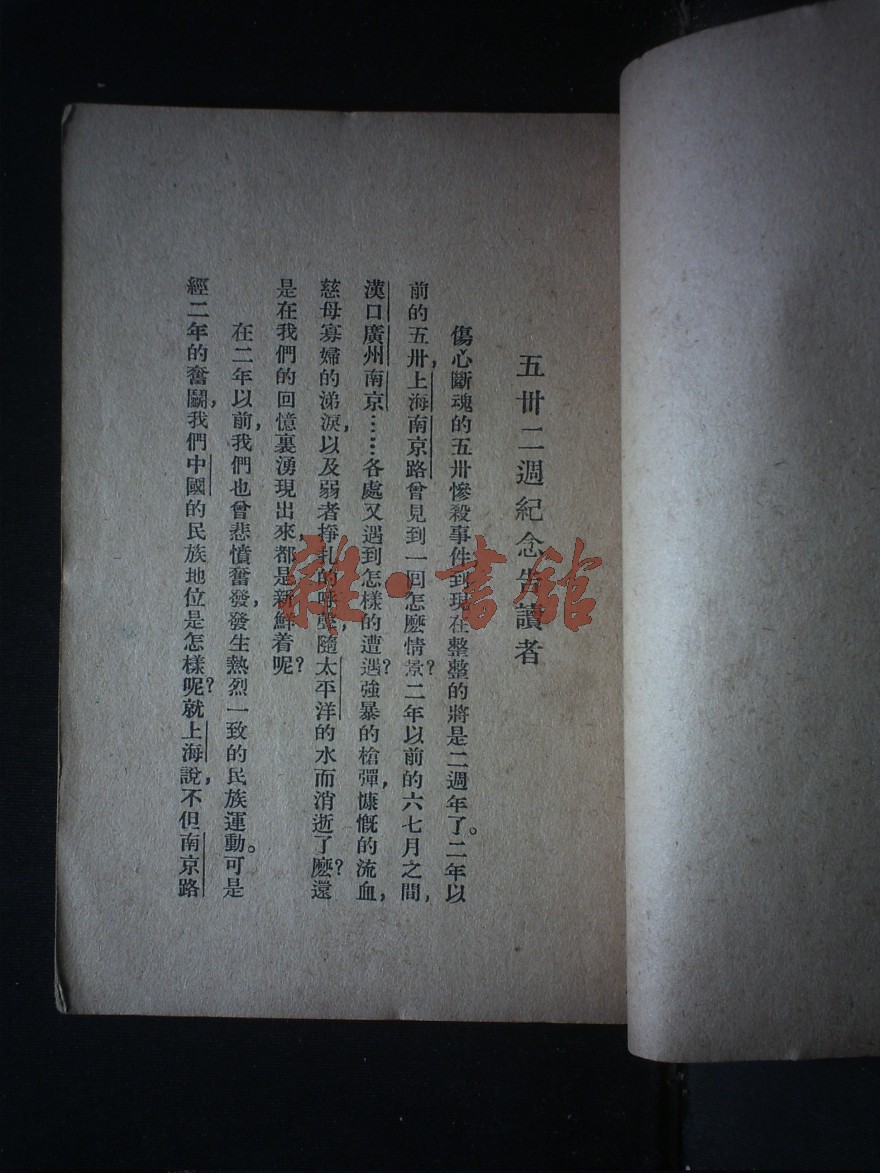 五卅二週紀念告讀者
傷心斷魂的五卅慘殺事件到現在整整的將是二週年了。二年以
前的五卅，上海南京路曾見到一回怎麽情景？二年以前的六七月之間，
漢口廣州南京……各處又遇到怎樣的遭遇？強暴的槍彈，慷慨的流血，
慈母寡婦的涕淚，以及弱者掙扎的呼聲，隨太平洋的水而消逝了麽？還
是在我們的回憶裏湧現出來，都是新鮮着呢？
在二年以前，我們也曾悲憤奮發，發生熱烈一致的民族運動。可是
經二年的奮鬭，我們中國的民族地位是怎樣呢？就上海說，不但南京路
雜·書館